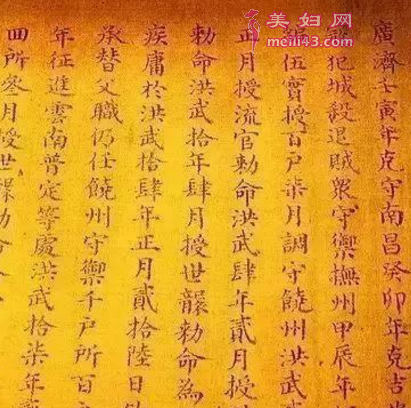 美妇网
meili43.com
廣濟壬寅年克守南昌癸卯年克吉
犯城殺退賊衆守禦撫州甲辰年
伍實授百戶柒月調守饒州洪武
正月授流官勅命洪武肆年貳月授
勅命洪武拾年肆月授世襲勅命為
疾庸於洪武拾肆年正月貳拾陸日
承替父職仍任饒州守禦千戶所百
年征進雲南普定等處洪武拾柒年
四所叄月授世襲勅命